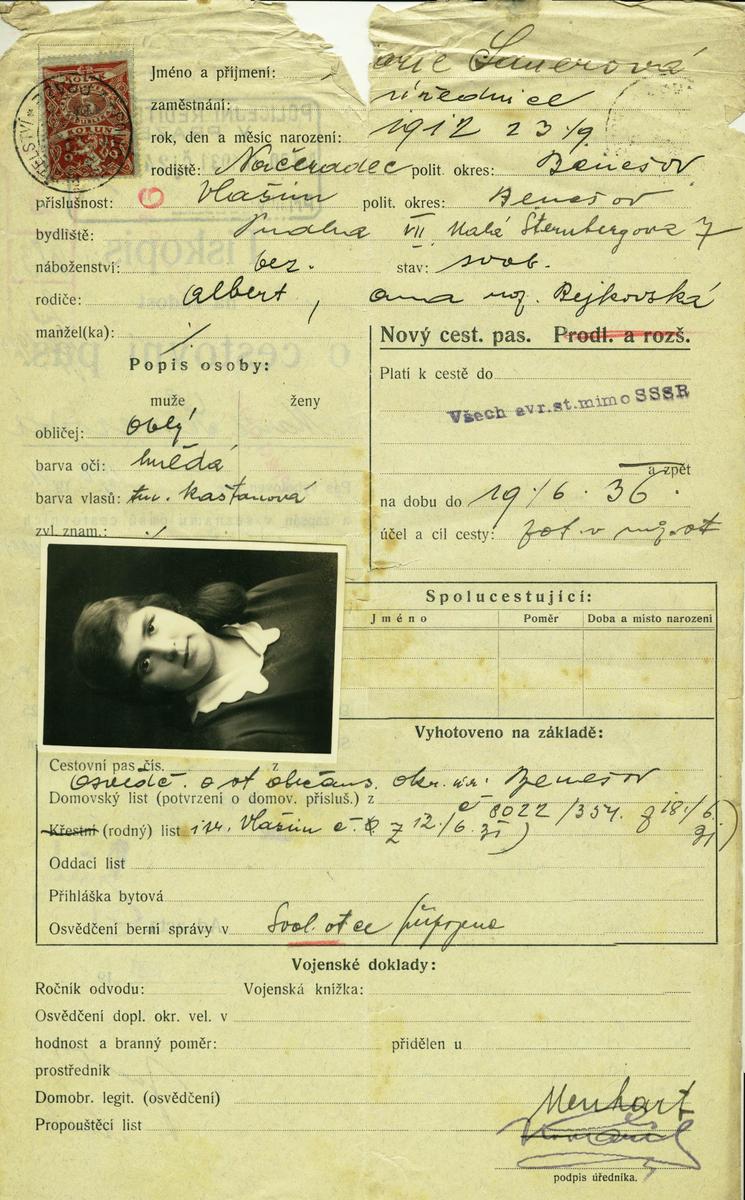 Jméno a příjmení: Sauerová
zaměstnání: úřednice
rok, den a měsíc narození: 1912 23/9
rodiště: Načeradec polit. okres: Benešov
příslušnost: Vlašim polit. okres: Benešov
6
bydliště: Praha VII Malá Sternbergova 7
náboženství: bez. stav: svob.
rodiče: Albert, Ana roz. Bejkovská
manžel(ka): /.
Nový cest. pas. Prodl. a rozš.
Popis osoby:
Platí k cestě do
muže ženy
Všech evr.st.mimo SSSR
obličej: oblý
barva očí: hnědá
a zpět
barva vlasů: tm. kaštanová
na dobu do 19/6. 36.
zvl. znam.: /.
účel a cíl cesty:
Spolucestující:
Jméno Poměr Doba a místo narození
Vyhotoveno na základě:
Cestovní pas čís. z
osvědč. o st. občans. okr. úř. Benešov
Domovský list (potvrzení o domov. přísluš.) z č 8022/354. z 18./6. 31)
Křestní (rodný) list Vlašim č. 8 z 12./6. 31)
Oddací list
Přihláška bytová
Osvědčení berní správy v Svol. otce připojeno
Vojenské doklady:
Ročník odvodu: Vojenská knížka:
Osvědčení dopl. okr. vel. v
hodnost a branný poměr: přidělen u
prostředník
Domobr. legit. (osvědčení)
Menhart
Propouštěcí list
podpis úředníka.